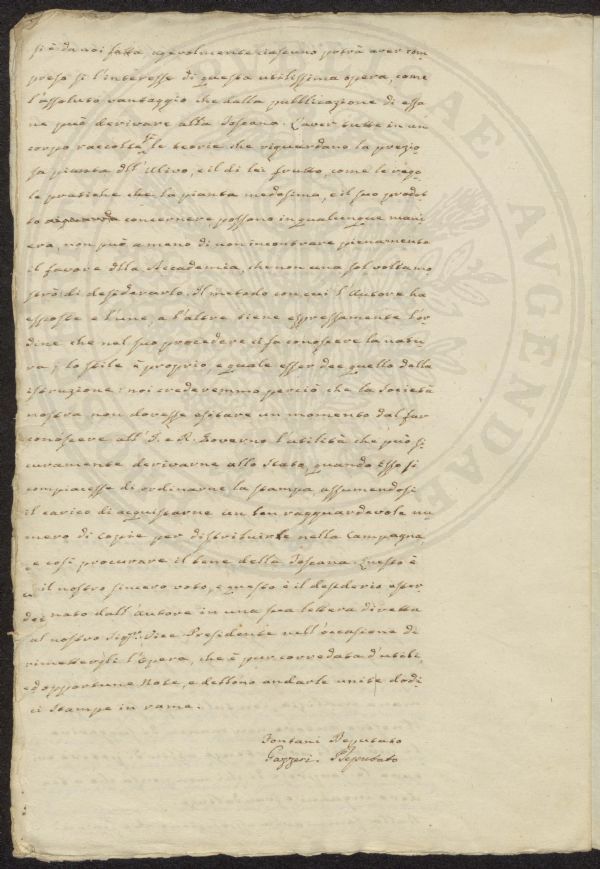 si è da noi fatta agevolmente ciascuno potrà aver com
preso sì l'interesse di questa utilissima opera, come
l'assoluto vantaggio che dalla pubblicazione di essa
ne può derivare alla Toscana. L'aver tutte in un
corpo raccolte le teorie che riguardano la prezio
sa pianta dell'Ulivo, e il di lei frutto, come le rego
le pratiche che la pianta medesima, e il suo prodot
to concernere possano in qualunque mani
era, non può a meno di non incontrare pienamente
il favore della Accademia, che non una sol volta mo
strò di desiderarlo. Il metodo con cui l'Autore ha
esposte e l'une, e l'altre tiene espressamente l'or
dine che nel suo procedere ci fa conoscere la natu
ra; lo stile è proprio, e quale esser dee quello della
istruzione: noi crederemmo perciò che la Società
nostra non dovesse esitare un momento dal far
conoscere all'I. e R. Governo l'utilità che può si
curamente derivarne allo Stato, quando Esso si
compiacesse di ordinarne la stampa assumendosi
il carico di acquistarne un ben ragguardevole nu
mero di Copie per distribuirle nella Campagna,
e così procurare il bene della Toscana. Questo è
il nostro sincero voto, e questo è il desiderio ester
nato dall'Autore in una sua lettera diretta
al nostro Sigr. Vice Presidente nell'occasione di
rimettergli l'Opera, che è pur corredata d'utili,
ed opportune Note, e debbono andarle unite dodi
ci stampe in rame.
Fontani Deputato
Gazzeri Deputato
AVGENDAE